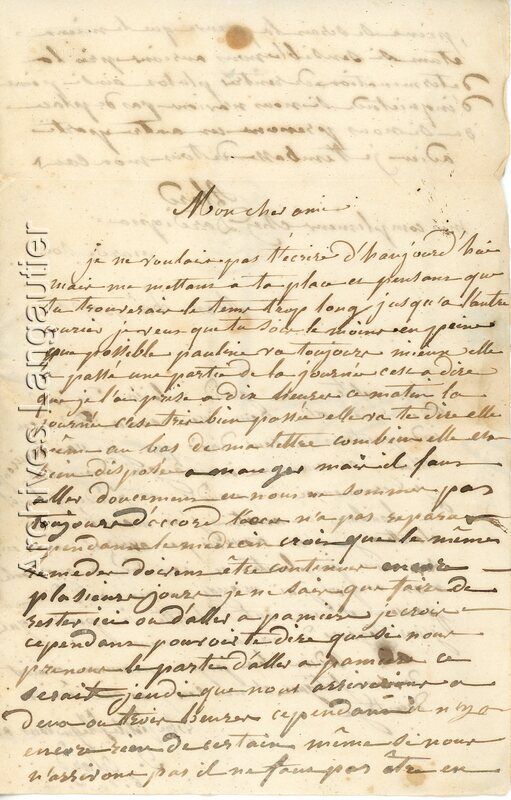 Mon cher ami
je ne voulais pas t'ecrire d'haujourd'hui
mais me mettant a ta place et pensant que
tu trouverais le tems trop long jusqu'a l'autre
courier je veux que tu sois le moins en peine
que possible pauline va toujours mieux elle
a passé une partie de la journée cest a dire
que je l'ai prise a dix heures ce matin la
journée c'est tres bien passée elle va te dire elle
même au bas de ma lettre combien elle est
bien disposé a manger mais il faut
aller doucement et nous ne sommes pas
toujours d'accord l'acces n'a pas reparu
cependant le medecin crois que le mêmes
remedes doivent être continuer encore
plusieurs jours je ne sais que faire de
rester ici ou d'aller a pamiers je crois
cependant pouvoir te dire que si nous
prenons le parti d'aller a pamiers ce
serait jeudi que nous arriverions a
deux ou trois heures cependant il n'y a
encore rien de certain même si nous
n'arrivons pas il ne faut pas être en
Archives Langautier